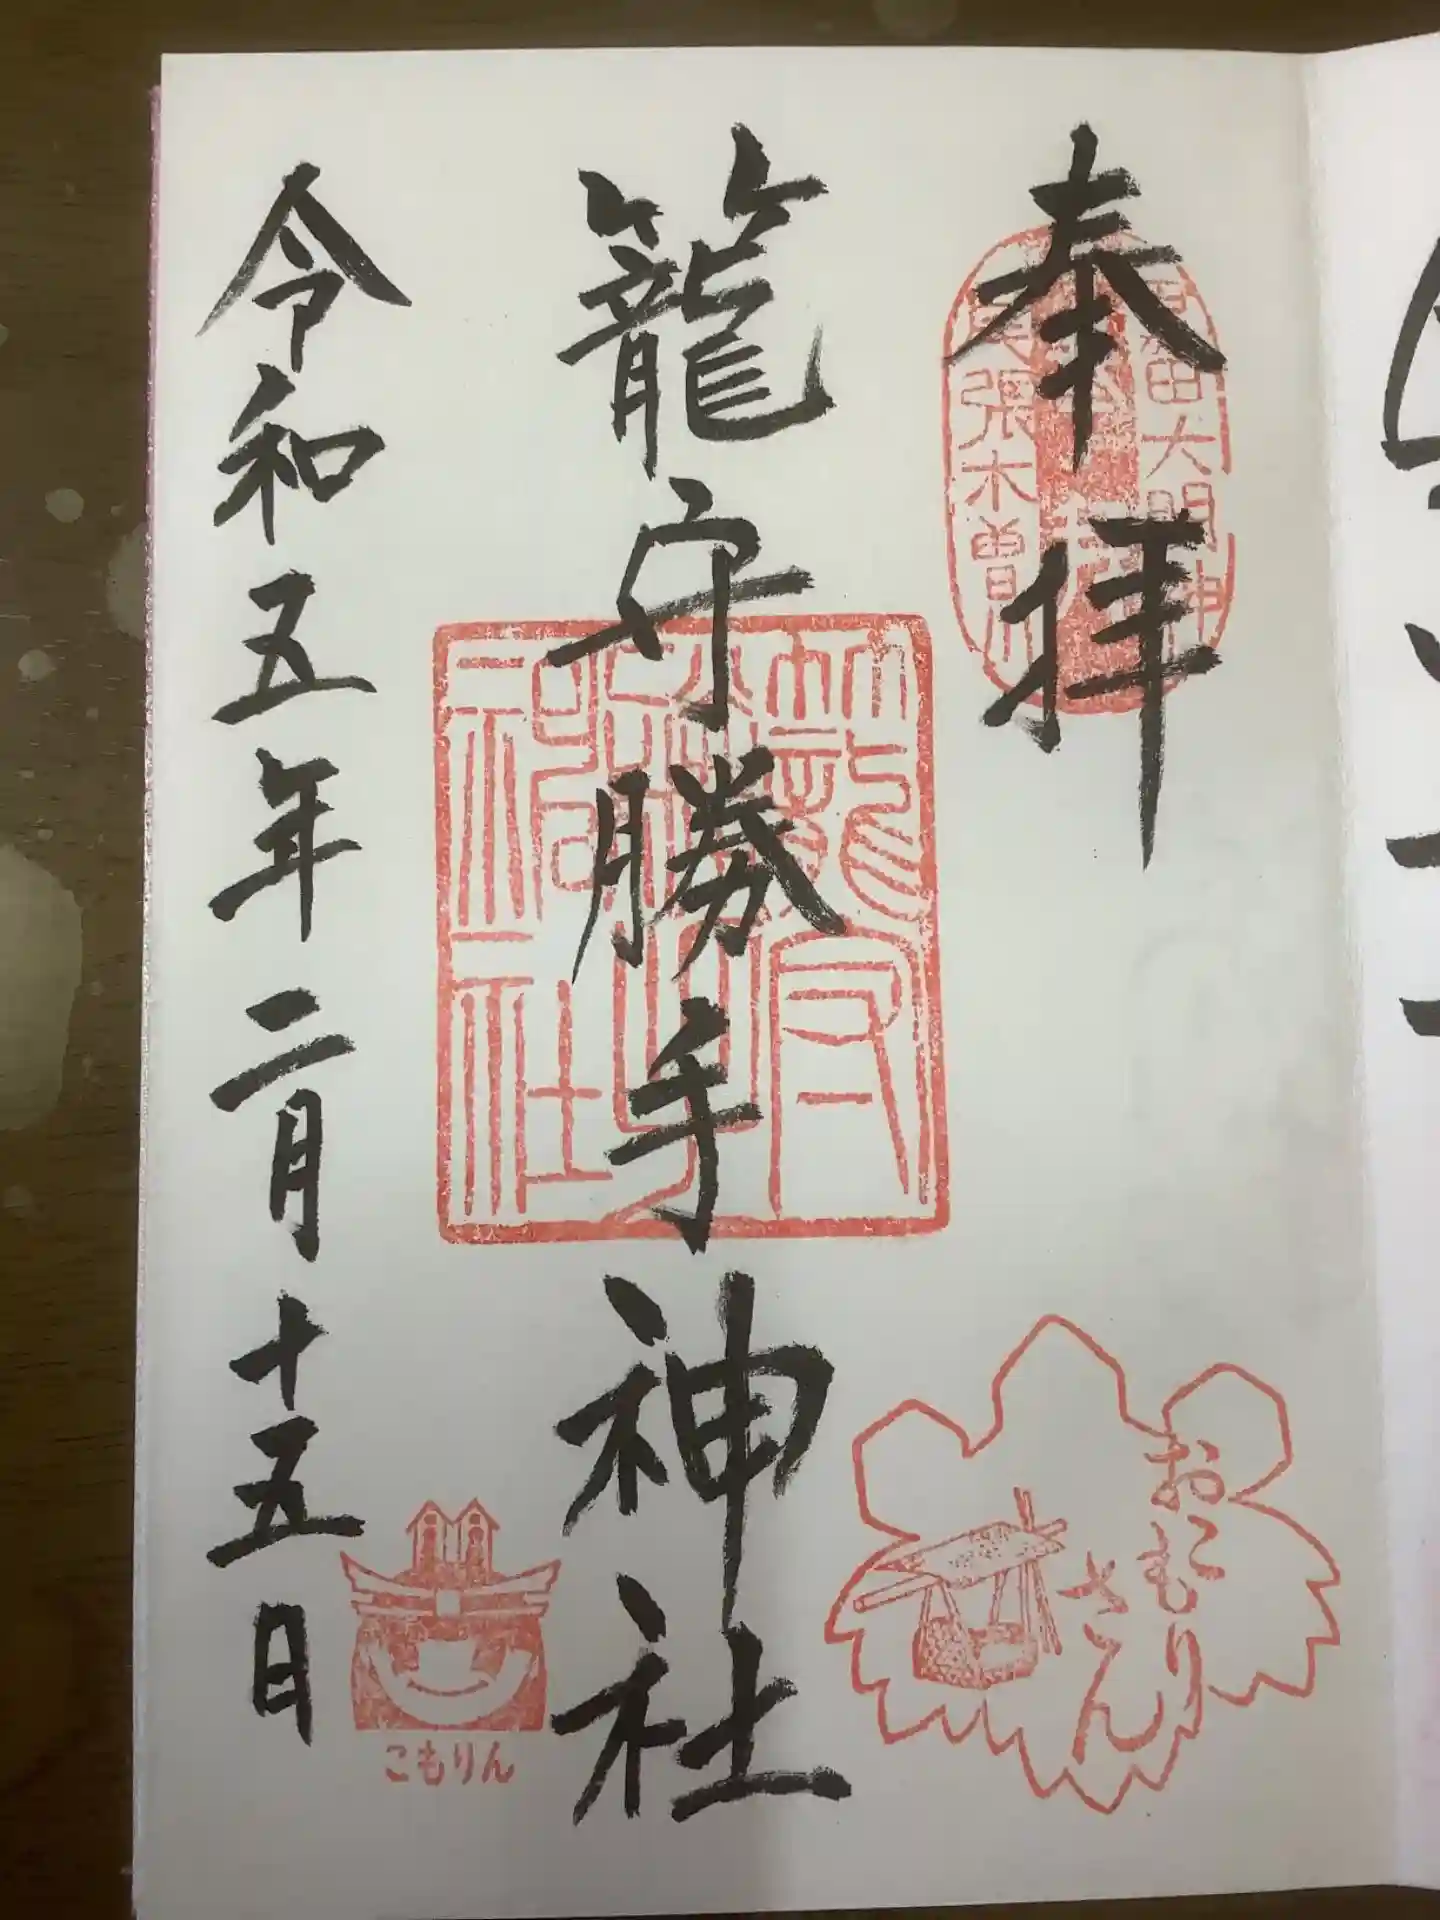 奉拝
籠守勝手神社
令和五年二月十五日
尾張木曽川
籠守勝手神社
おこもりさん
こもりん